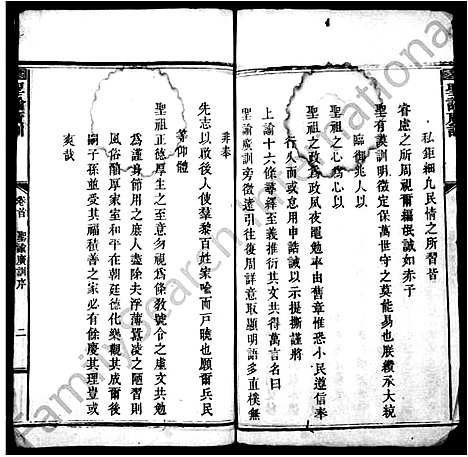 私鉅細凡民情之所習皆
睿慮之所周視爾編氓誠如赤子
聖有謨訓明徵定保萬世守之莫能易也朕纘承大統
臨御兆人以
聖祖之心爲心以
聖祖之政爲政夙夜黽勉率由舊章惟恐小民遵信奉
行久而或怠用申誥誡以示提撕謹將
上諭十六條尋繹其義推衍其文共得萬言名曰
聖諭廣訓旁徵遠引往復周詳意取顯明語多直樸無
非奉
先志以啟後人使羣黎百姓家喻而戶曉也願爾兵民
等仰體
聖祖正德厚生之至意勿視爲條敎號令之虛文共勉
爲謹身節用之庶人盡除夫浮薄囂凌之陋習則
風俗醇厚家室和平在朝廷德化樂觀其成爾後
嗣子孫並受其福積善之家必有餘慶其理豈或
爽哉
聖諭廣訓
卷首 聖諭廣訓序
二
聖諭廣訓
FamilySearch International